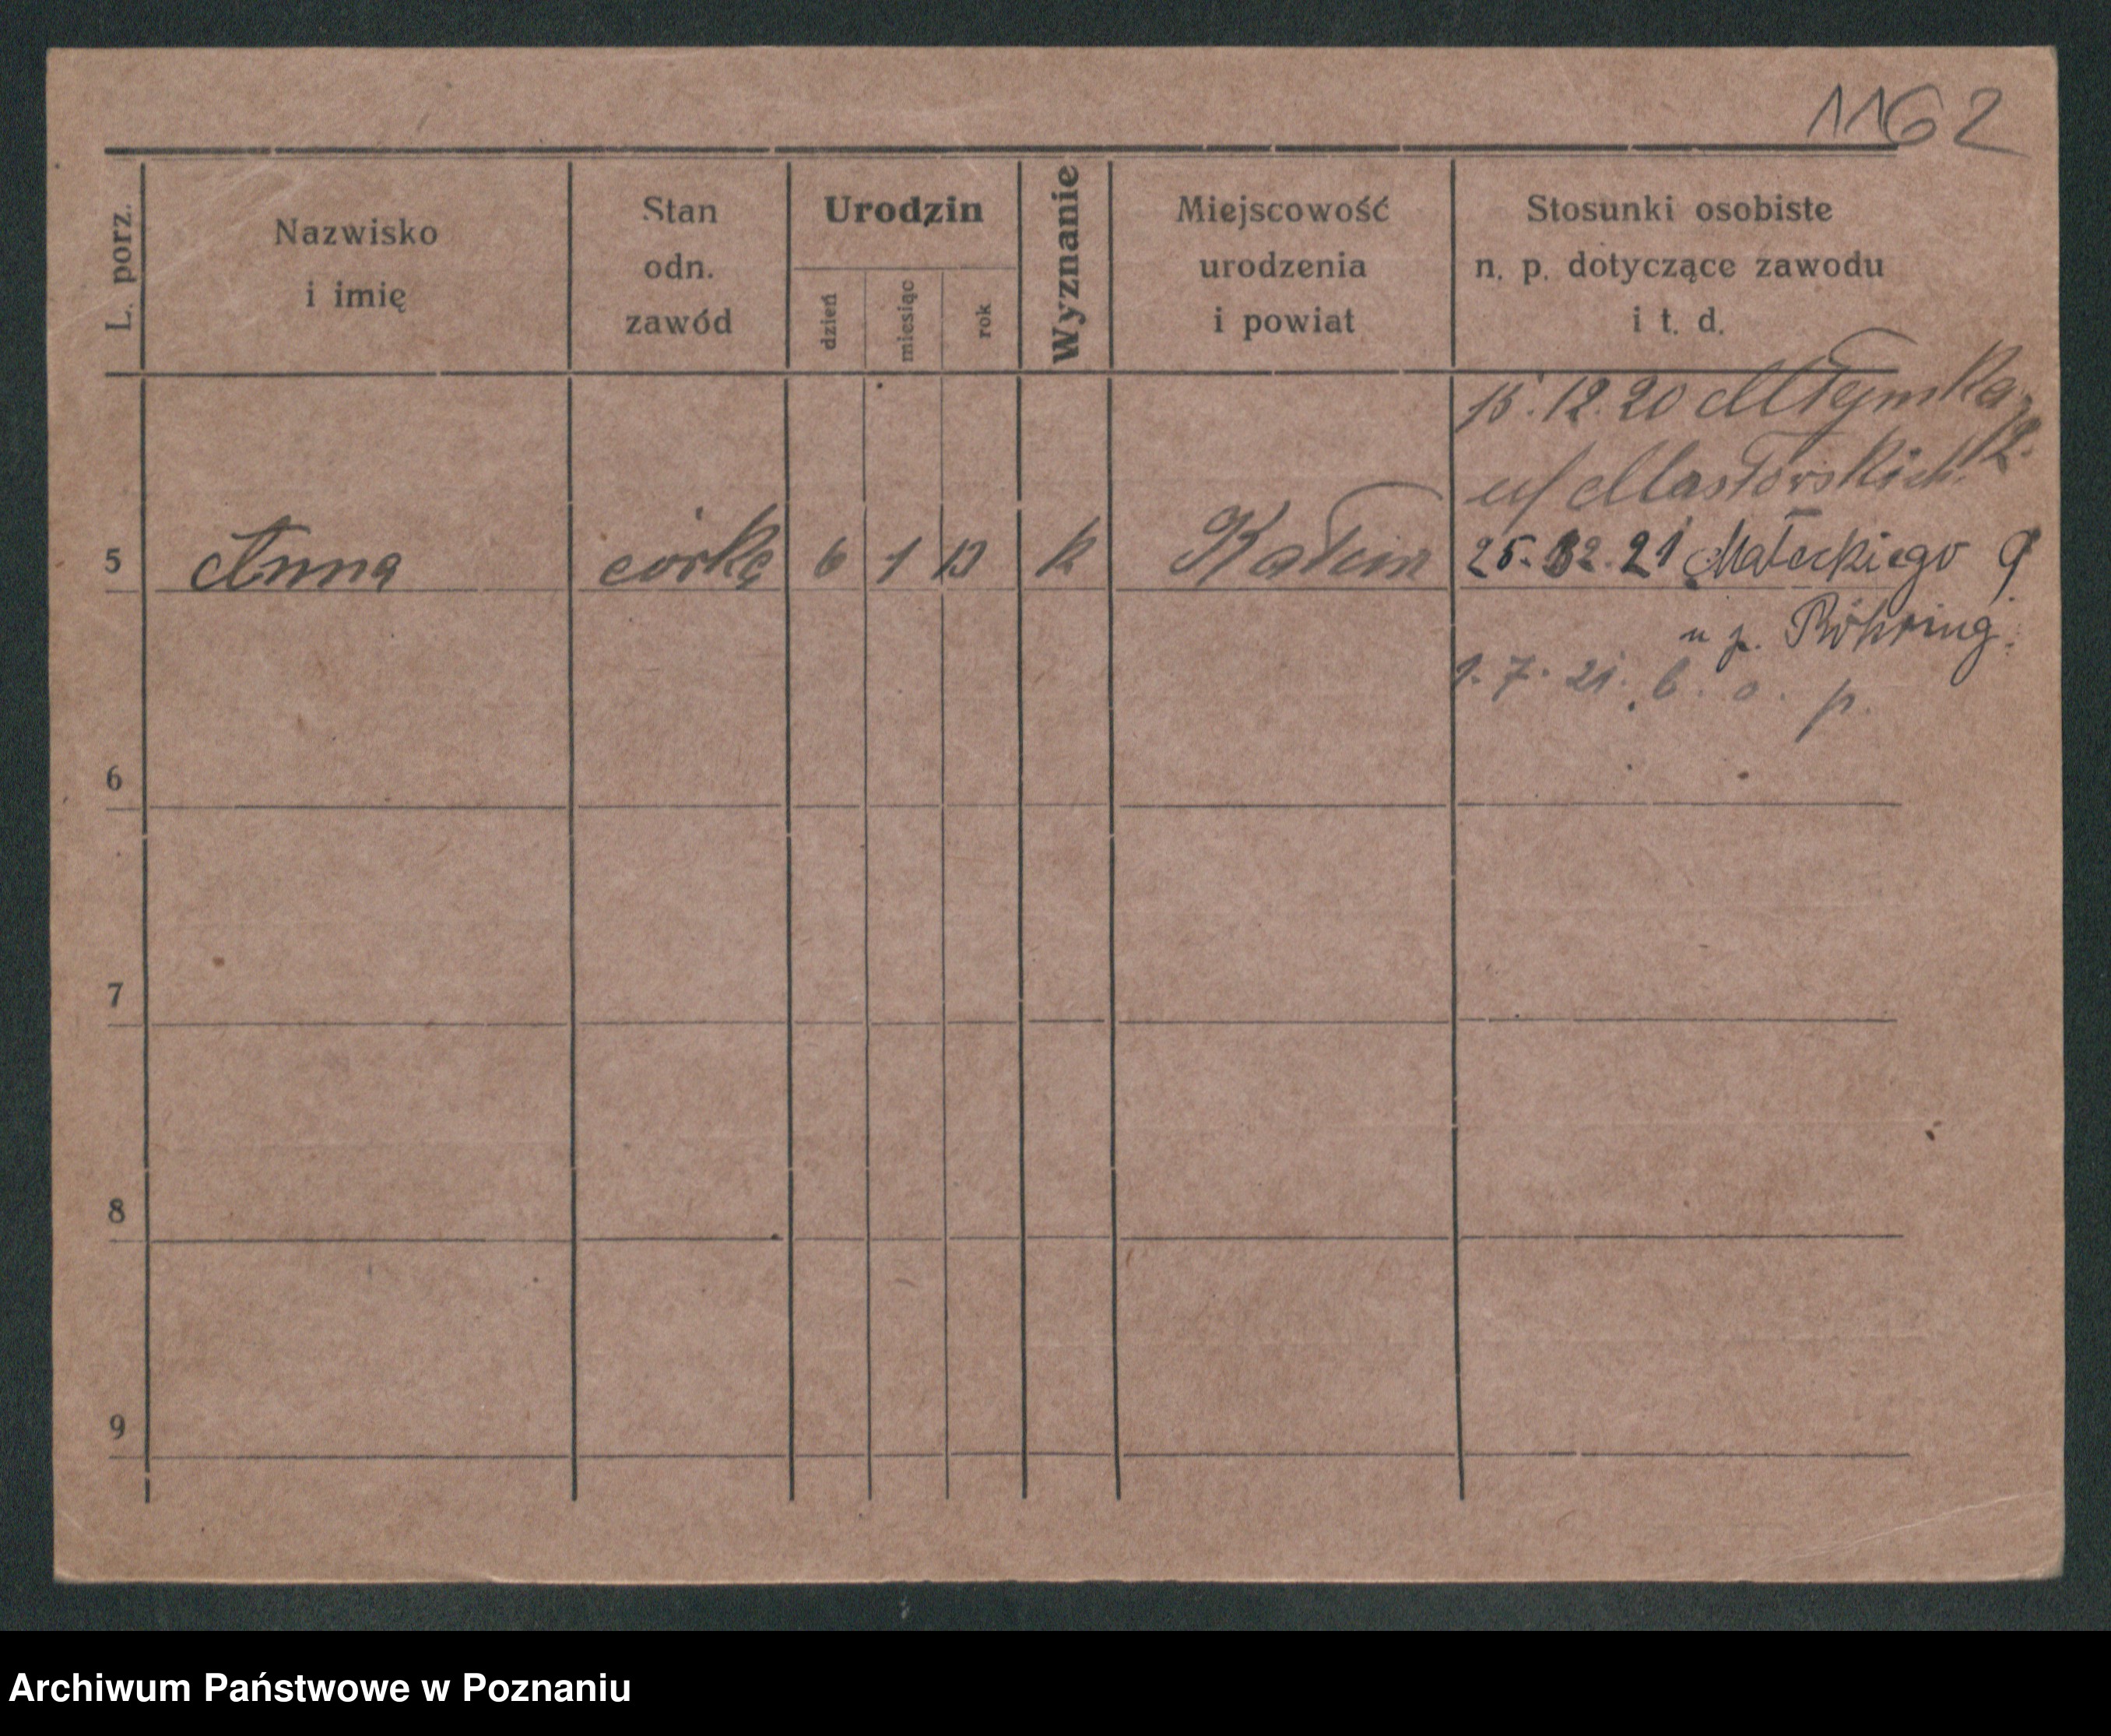 1162
L. porz.
Nazwisko
i imię
Stan
odn.
zawód
Urodzin
dzień
miesiąc
rok
Wyznanie
Miejscowość
urodzenia
i powiat
Stosunki osobiste
n. p. dotyczące zawodu
i t. d.
15.12.20 Młyńska
12.
u/ Masłowskich
5 Anna córka 6 1 13 k 25. 2. 21 Małeckiego 9
u p. Röhring.
1. 7. 21. b. o. p.
6
7
8
9
Archiwum Państwowe w Poznaniu